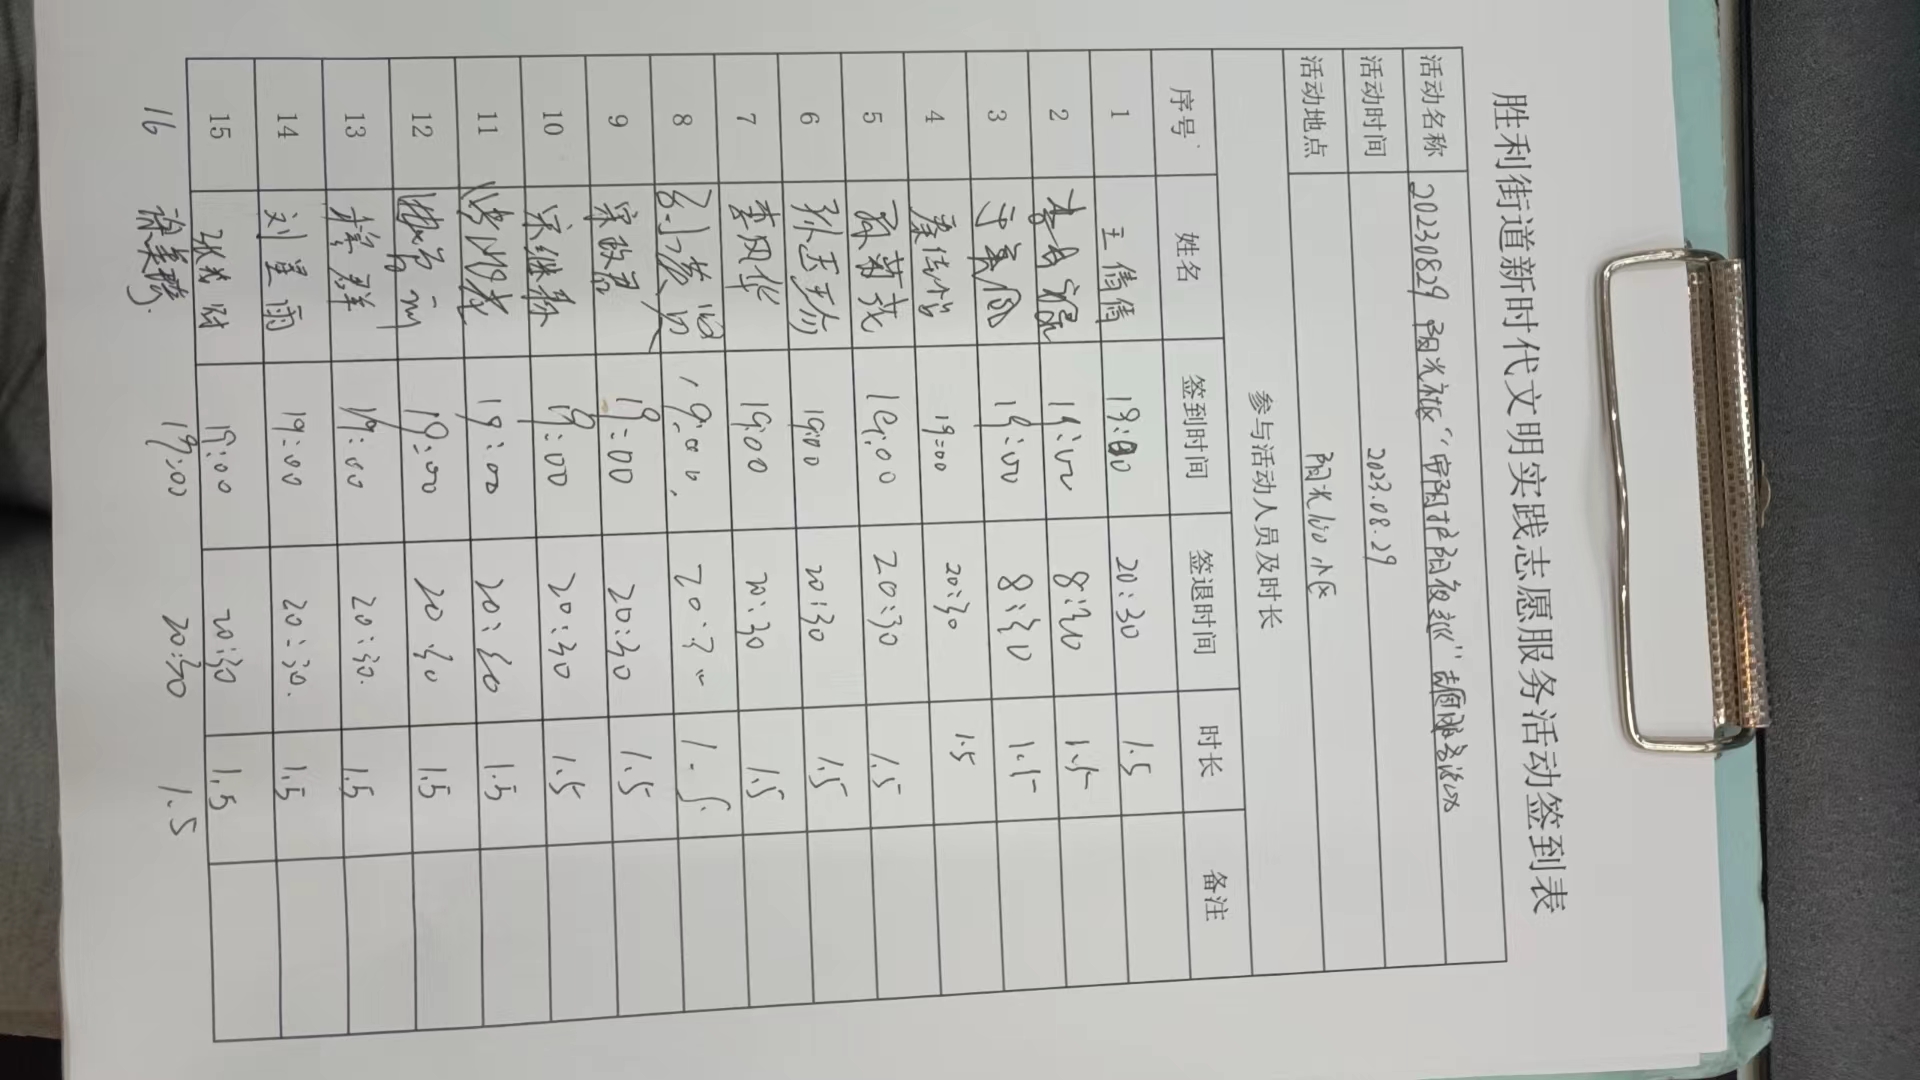 胜利街道新时代文明实践志愿服务活动签到表
活动名称 20230829 阳光社区“ 夜巡”志愿服务活动
活动时间 2023.08.29
活动地点 阳光 小区
参与活动人员及时长
序号 姓名 签到时间 签退时间 时长 备注
1 王倩倩 19:00 20:30 1.5
2 19:00 8:30 1.5
3 19:00 8:30 1.5
4 19:00 20:30 1.5
5 19:00 20:30 1.5
6 孙玉 19:00 20:30 1.5
7 李凤华 19:00 20:30 1.5
8 19:00. 20:30 1.5.
9 宋政君 19:00 20:30 1.5
10 宋继 19:00 20:30 1.5
11 19:00 20:30 1.5
12 19:00 20:30 1.5
13 群 19:00 20:30. 1.5
14 刘星雨 19:00 20:30. 1.5
15 张 19:00 20:30 1.5
16 19:00 20:30 1.5